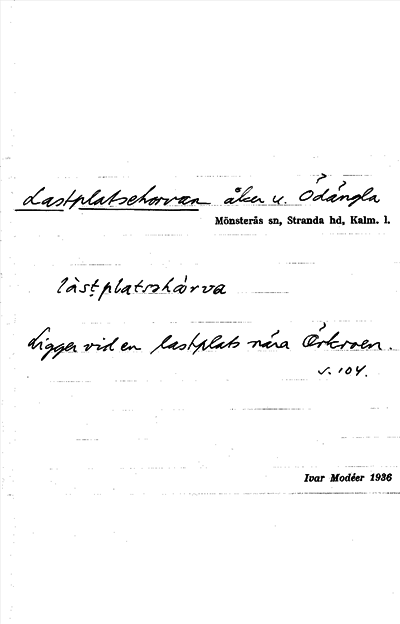 Lastplatsehorvan åker u. Ödängla
Mönsterås sn, Stranda hd, Kalm. l.
làstplatsəhòrva
Ligger vid en lastplats nära Örkroen.
s. 104.
Ivar Modéer 1936